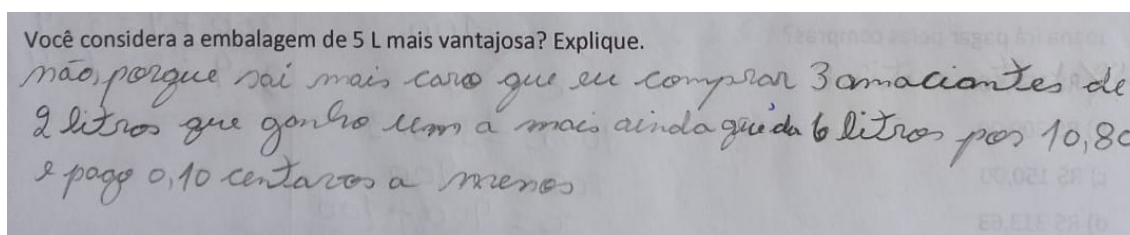 Você considera a embalagem de 5 L mais vantajosa? Explique.
não, porque sai mais caro que eu comprar 3 amaciantes de
2 litros que ganho um a mais ainda que da 6 litros por 10,80
e pago 0,10 centavos a menos